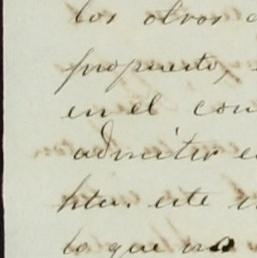 los otros
propuesto,
en el con
admitir e
hta. este
lo que no